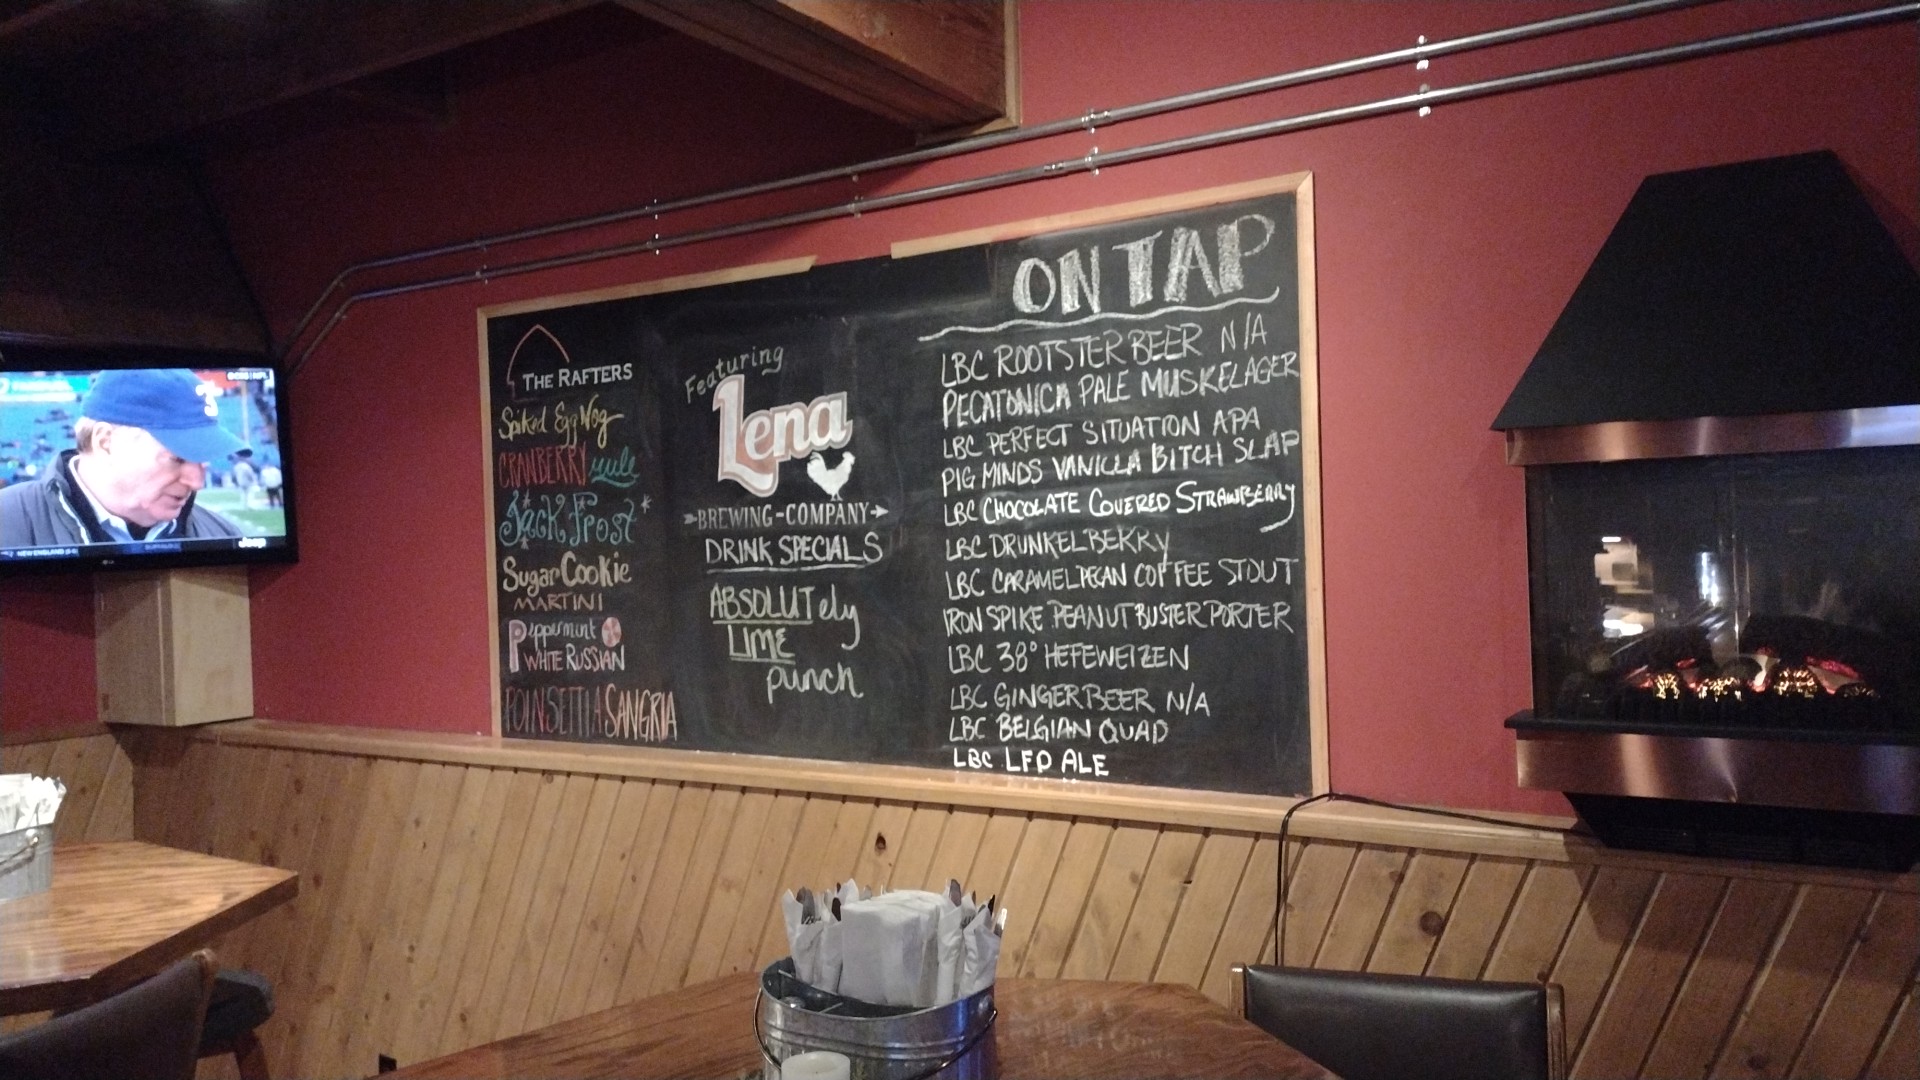 THE RAFTERS
Spiked Egg Nog
CRANBERRY mule
JACK FROST
Sugar Cookie
MARTINI
Peppermint
WHITE RUSSIAN
POINSETTIA SANGRIA
Featuring
Lena
BREWING-COMPANY
DRINK SPECIALS
ABSOLUTely
LIME
punch
ON TAP
LBC ROOTSTER BEER N/A
PECATONICA PALE MUSKELAGER
LBC PERFECT SITUATION APA
PIG MINDS VANILLA BITCH SLAP
LBC CHOCOLATE COVERED STRAWBERRY
LBC DRUNKELBERRY
LBC CARAMEL PECAN COFFEE STOUT
IRON SPIKE PEANUT BUSTER PORTER
LBC 38° HEFEWEIZEN
LBC GINGER BEER N/A
LBC BELGIAN QUAD
LBC LFD ALE
NEW ENGLAND
Jeep